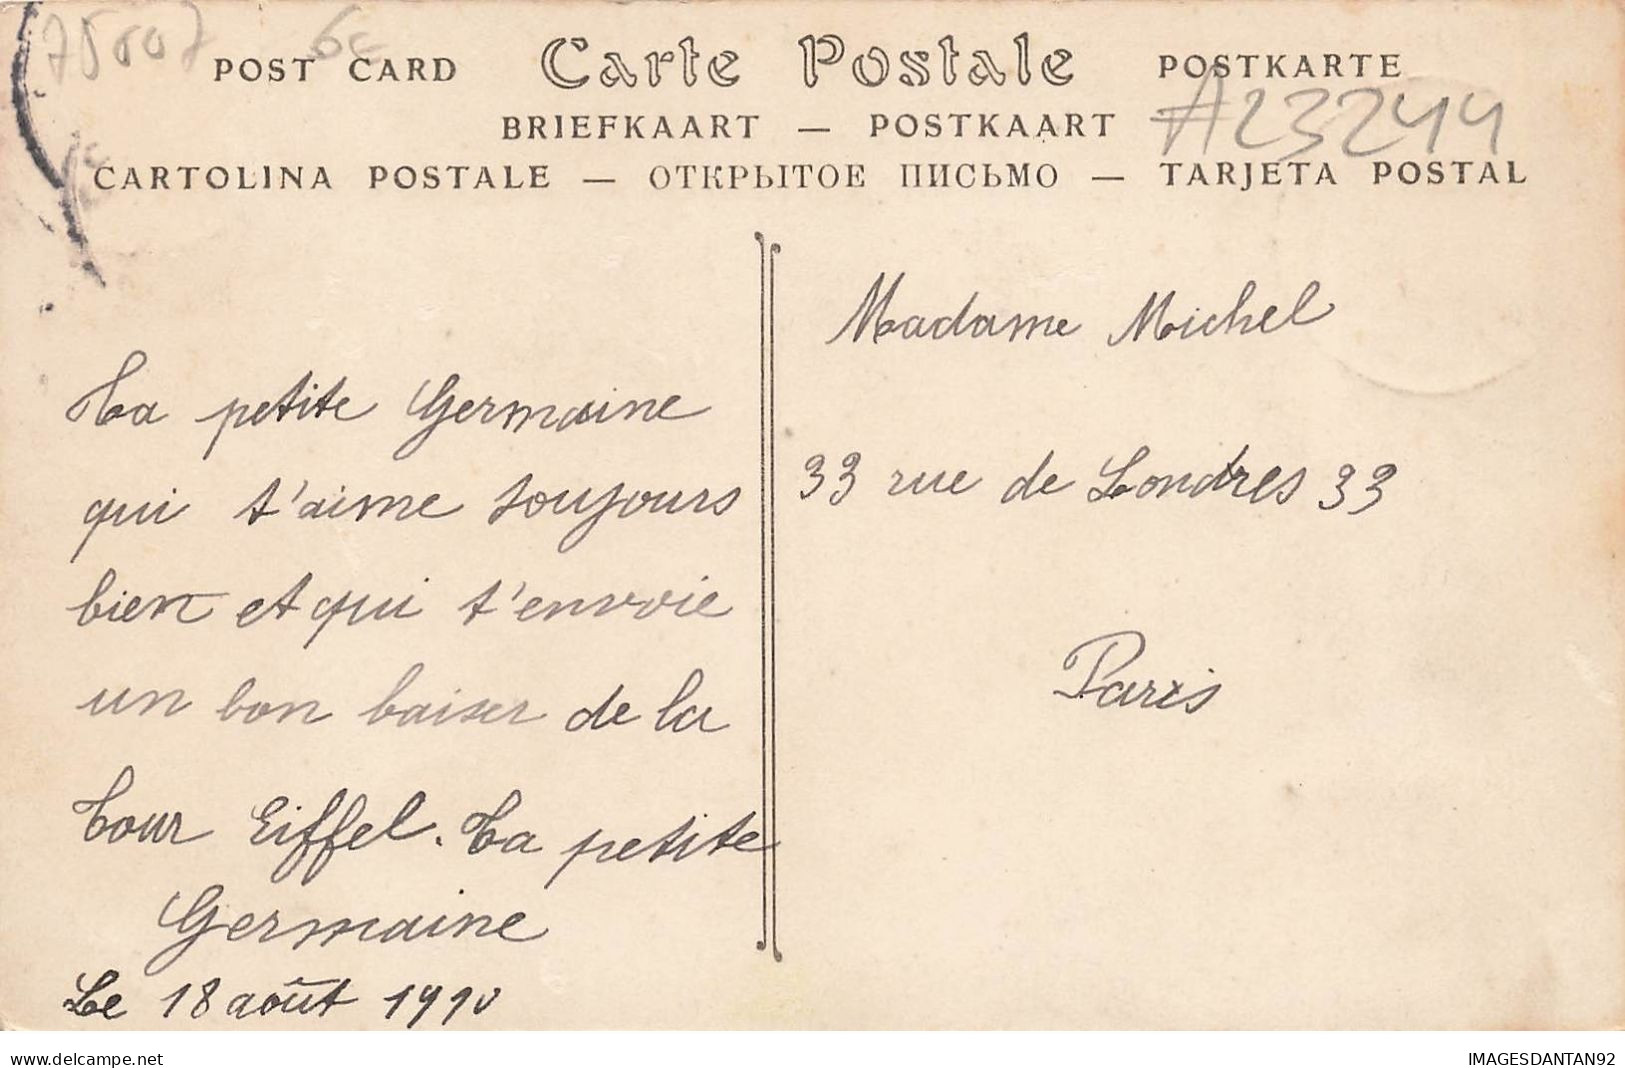 75007 6e
POST CARD Carte Postale POSTKARTE
BRIEFKAART — POSTKAART
A23244
CARTOLINA POSTALE — ОТКРЫТОЕ ПИСЬМО — TARJETA POSTAL
Ta petite Germaine
qui t'aime toujours
bien et qui t'envoie
un bon baiser de la
Tour Eiffel. Ta petite
Germaine
Le 18 août 1910
Madame Michel
33 rue de Londres 33
Paris
www.delcampe.net
IMAGESDANTAN92